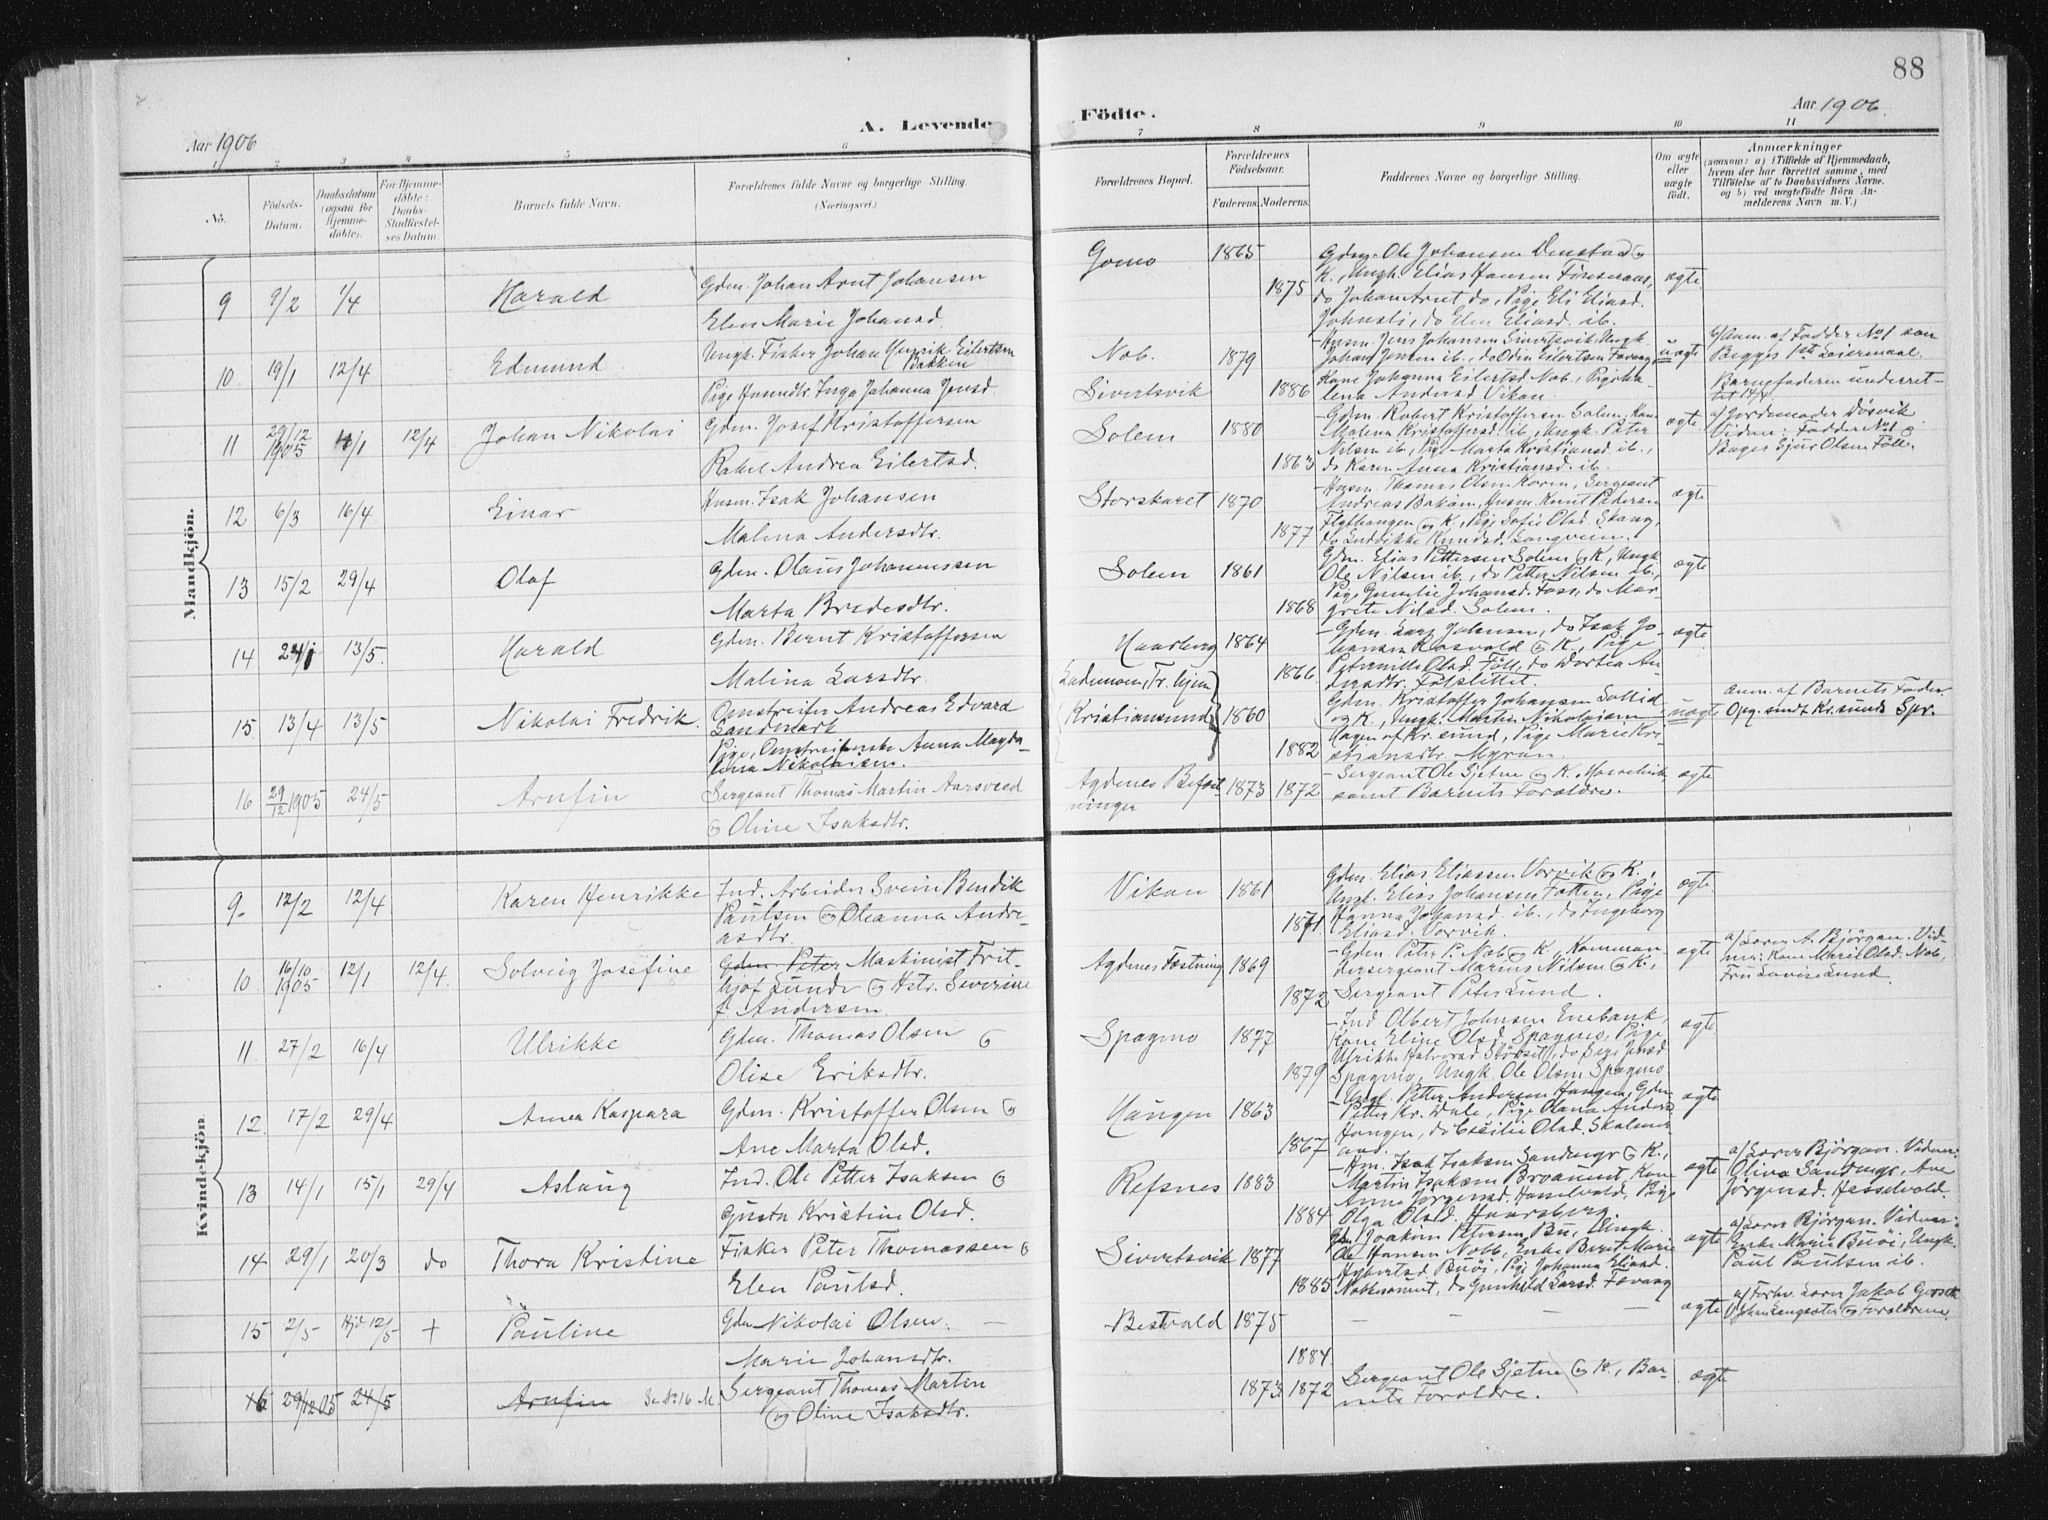 88
Aar 1906
A. Levende
Födte.
Aar 1906.
1 2 3 4 5 6 7 8 9 10 11
No.
Födsels-Datum.
Daabsdatum (ogsaa for Hjemmedöbte).
For Hjemmedöbte: Daabs-Stadfæstelses Datum.
Barnets fulde Navn.
Forældrenes fulde Navne og borgerlige Stilling.
(Næringsvei.)
Forældrenes Bopæl.
Forældrenes Födselsaar.
Faderens. Moderens.
Faddernes Navne og borgerlige Stilling.
Om ægte eller uægte födt.
Anmærkninger
(saasom: a) i Tilfælde af Hjemmedaab,
hvem der har forrettet samme, med
Tilföielse af to Daabsvidners Navne,
og b) ved uægtefödte Börn An-
melderens Navn m. V.)
Mandkjön.
9 9/2 1/4 Harald Gdm. Johan Arnt Johansen
Elen Marie Johansd.
Gomo 1865 1875
Gdm. Ole Johansen Denstad og
K., Ungk. Elias Hansen
do Johan Arnt do, Pige Eli Eliasd.
do Elen Eliasd. ib.
ægte
10. 19/1 12/4 Edmund Ungk. Fisker Johan Henrik Eilertsen
Bakken
Pige Inga Johanna Jensd.
Nob. 1879
Sivertsvik 1886
Husm. Jens Johansen Sivertsvik, Ungk.
Johan Jensen ib., do Odin Eilertsen
Kone Johanna Eilertsd. Nob., Pige
Andersd Vikan.
uægte
b/ Anm. af Fadder No 1 som
Begges 1ste Leiermaal.
Barnefaderen underret-
tet 14/4
11 29/12 1905 1/1 12/4 Johan Nikolai Gdm. Josef Kristoffersen
Rakel Andrea Eilertsd.
Solem 1880 1863
Gdm. Robert Kristoffersen Solem, Kone
Malena Kristoffersd. ib., Ungk. Peter
Nilsen ib., Pige Marta Kristiansd. ib.,
do Karen Anna Kristiansd. ib.
ægte
a/ Jordemoder Dösvik
Vidner: Fadder No 1 og
Sjur Olsen Föll.
12 6/3 16/4 Einar Husm. Isak Johansen
Malena Andersdtr.
Storskaret 1870 1877
Husm. Thomas Olsen Moren, Sergeant
Andreas Bakøen, Husm. Knut Pedersen
og K., Pige Sofie Olsd. Skaug,
do Ludvikke Knudsd.
ægte
13 15/2 29/4 Olaf Gdm. Olaus Johannessen
Marta Bredesdtr.
Solem 1861 1868
Gdm. Elias Pettersen Solem og K., Ungk.
Ole Nilsen ib., do Petter Nilsen ib.,
Pige Johansd. Foss, do Mar-
grete Nilsd. Solem.
ægte
14 24/1 13/5. Harald Gdm. Bernt Kristoffersen
Malina Larsdtr.
Haarberg 1864 1866
Gdm. Lars Johansen, do Isak Jo-
hansen Rosvold og K., Pige
Peternille Olsd. Föll, do Dortea An-
dersdtr.
ægte
15. 13/4 13/5 Nikolai Fredrik. Omstreifer Andreas Edvard
Sandmark
Pige, Omstreiferske Anna Magda-
lena Nikolaisen.
Lademoen, Tr. hjem
Kristiansund 1860 1882
Gdm. Kristoffer Johansen Sollid
og K., Ungk. Martin Nikolaisen
Hagen af Kr. sund, Pige Marie Kri-
stiansdtr Myran.
uægte
Anm. af Barnets Fader.
Opg. sendt Kr. sunds Spr.
16 29/12 1905 24/5 Arnfin Sergeant Thomas Martin Aarsveed
og Oline Isaksdtr.
Agdenes Befæst-
ninger 1873 1872
Sergeant Ole Gjetne og K.,
samt Barnets Forældre.
ægte
Kvindekjön
9. 12/2 12/4 Karen Henrikke Ind. Arbeider Svein Bendik
Paulsen og Oleanna Andre-
asdtr.
Vikan 1861 1871
Gdm. Elias Eliassen Vorvik og K.,
Ungk. Elias Johansen Fætten, Pige
Hanna Johansd. ib., do Ingeborg
Eliasd. Vorvik.
ægte
10. 16/10 1905 12/1 12/4. Solveig Josefine Gdm. Peter Maskinist Frit-
hjof Lunde og Hstr. Severine
f. Andersen.
Agdenes Fæstning 1869 1872
Gdm. Peter P. Nob og K., Komman-
dersergeant Marius Nilsen og K.,
Sergeant Peter Lund.
ægte
a/ Lærer A. Björgan. Vid-
ner: Kone Marit Olsd. Nob,
Fru Lovise Lund.
11. 27/2 16/4 Ulrikke Gdm. Thomas Olsen og
Olise Eriksdtr.
Spagmo 1877 1879
Ind. Albert Johnsen Enebank,
Kone Eline Olsd. Spagmo, Pige
Ulrikke Halvorsd. Störset, do
Spagmo, Ungk Ole Olsen Spagmo
ægte
12. 17/2 29/4 Anna Kaspara Gdm. Kristoffer Olsen og
Ane Marta Olsd.
Haugen 1863 1867
Ungk. Petter Andersen Haugen, Gdm.
Petter Kr. Dale, Pige Olava Andersd
Haugen, do Cecilie Olsd.
ægte
13 14/1 15/1 29/4 Aslaug Ind. Ole Petter Isaksen og
Gusta Kristine Olsd.
Refsnes 1883 1884
Hm. Isak Isaksen Sandmyr og K.,
Martin Isaksen Kone
Anne Jörgensd. Hasselvold, Pige
Olga Olsd. Haarberg
ægte
a/ Lærer Björgan. Vidner:
Oliva Sandmyr, Ane
Jörgensd. Hasselvold.
14 29/1 20/3 do Thora Kristine Fisker Peter Thomassen og
Elen Paulsd.
Sivertsvik 1877 1885
Gdm. Joakim Petersen Bu, Ungk.
Ole Hansen Nobb, Enke Berit Marie
Pige Johanna Eliasd.
do Gunhild Larsd.
ægte
a/ Lærer Björgan. Vidner:
Enke Marie Buöi, Ungk.
Paul Paulsen ib.
15 2/5 Hjd. 12/5 + Pauline Gdm Nikolai Olsen. —
Marie Johansdtr.
Bestvold 1875 1884.
— — — — —
ægte
a/ Forhv. Lærer Jakob
og Forældrene
16 29/12 05 24/5 Arnfin Se No 16 M. Sergeant Thomas Martin
og Oline Isaksdtr.
1873 1872
Sergeant Ole Gjetne og K., Bar-
nets Forældre.
ægte